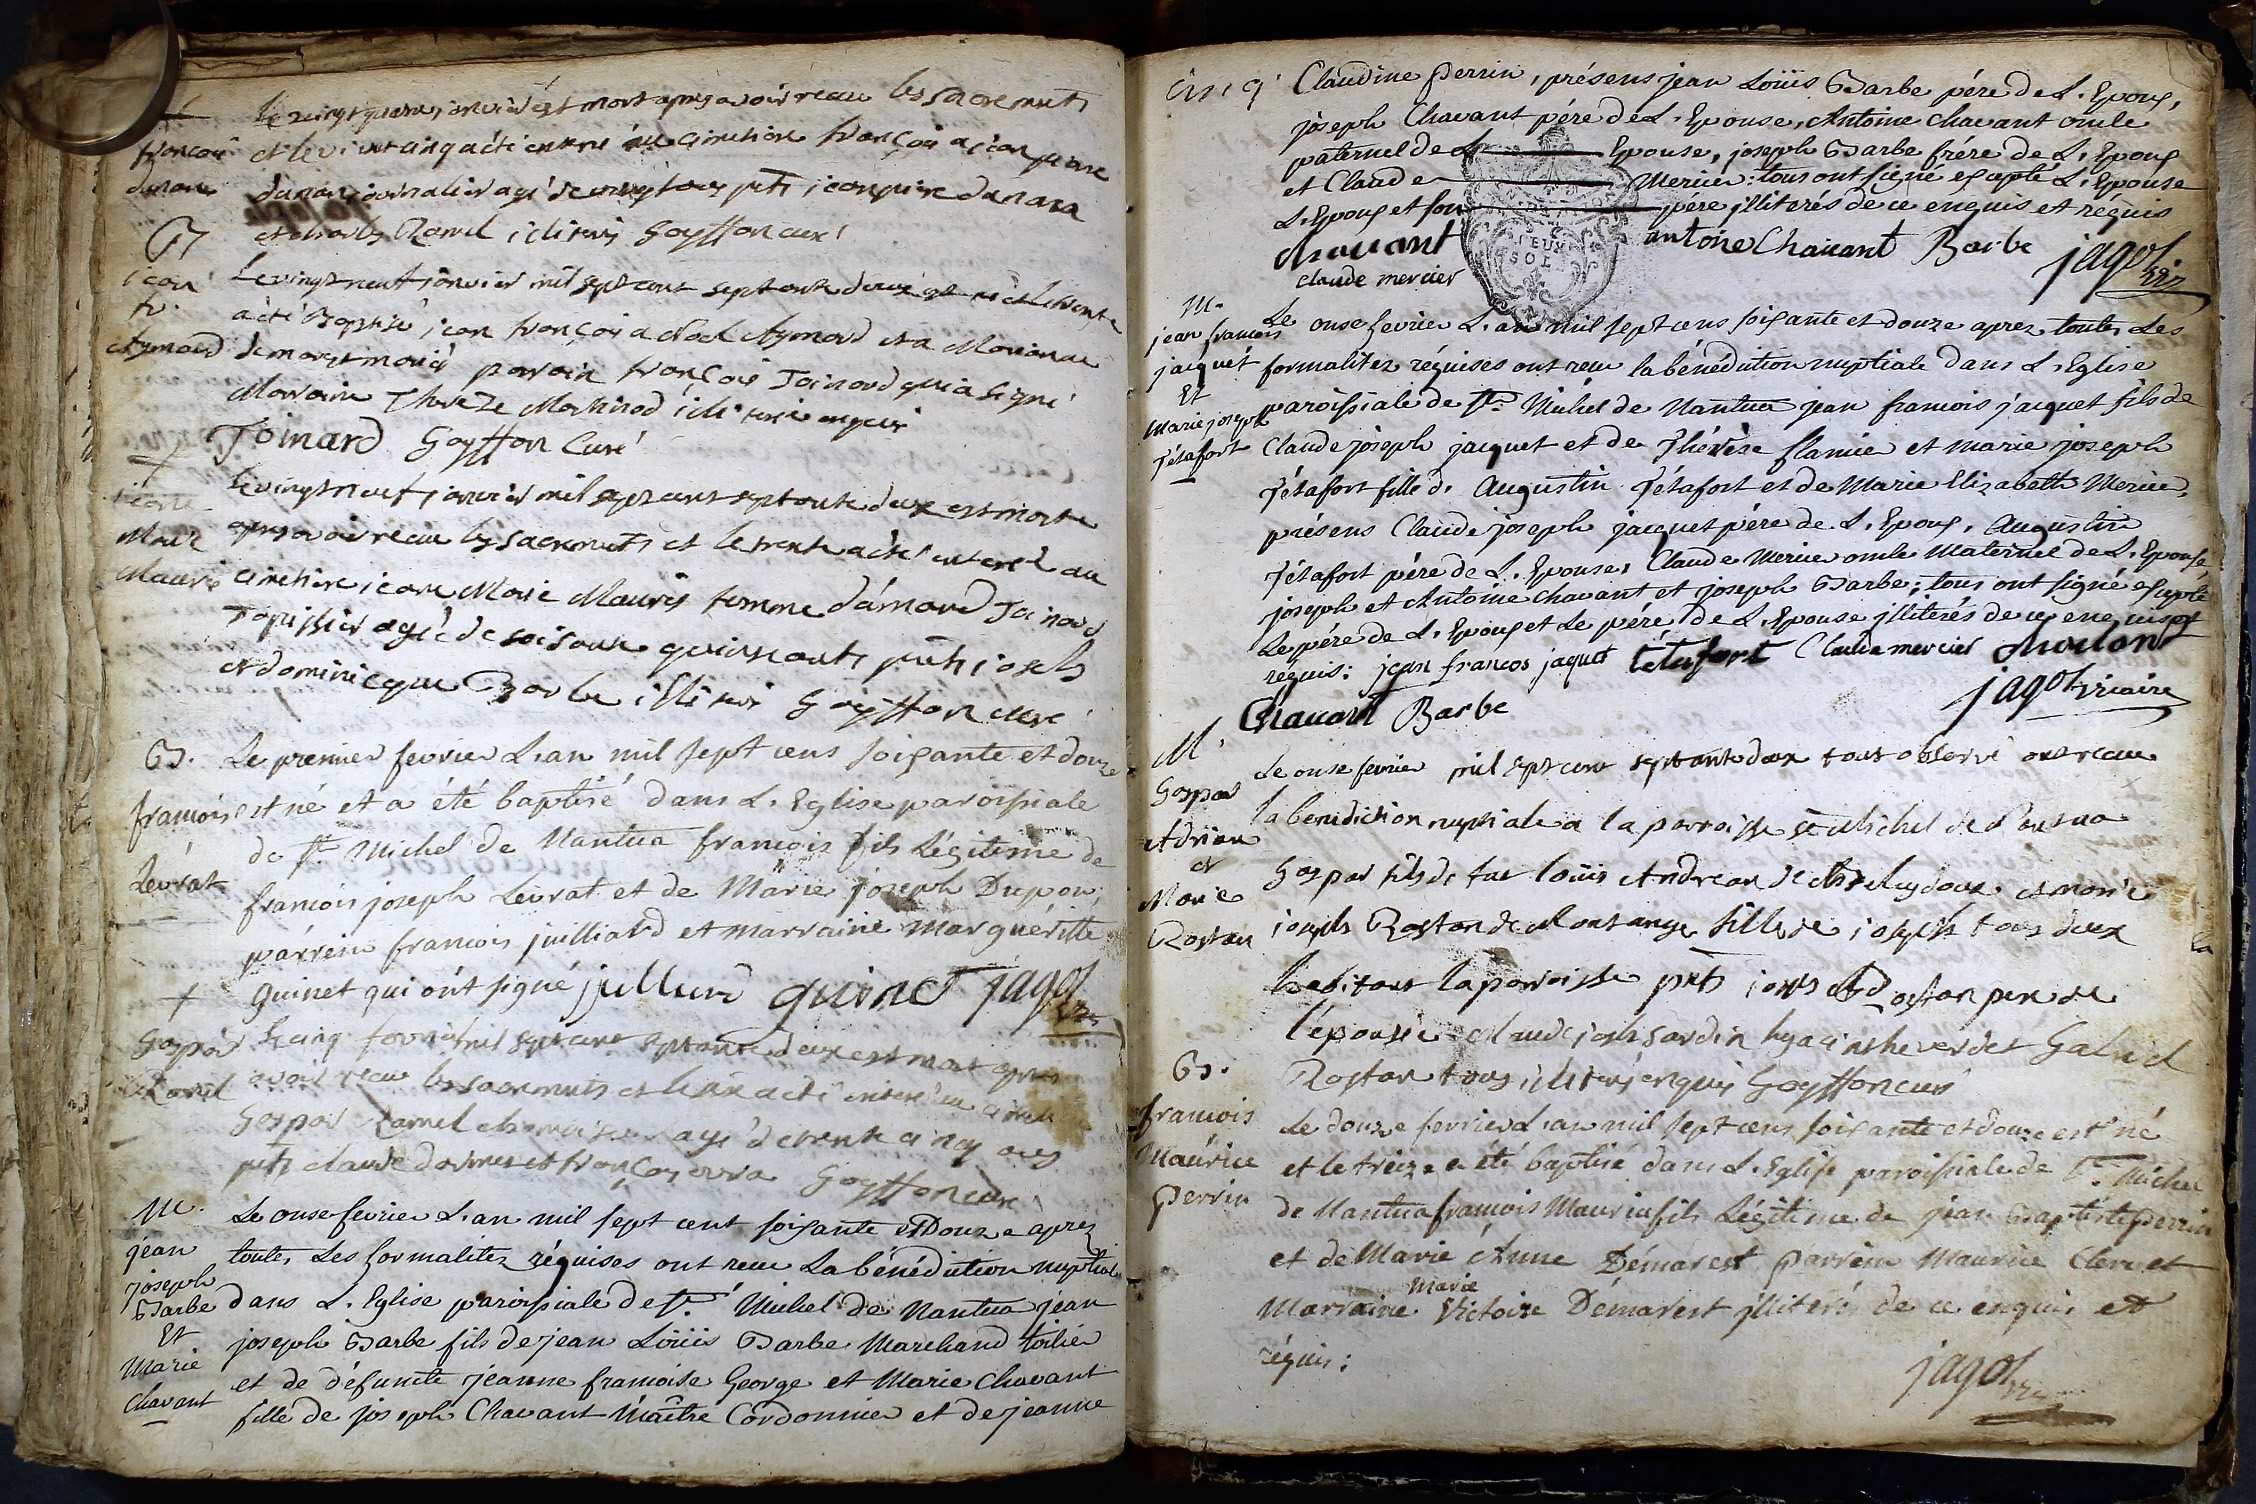 françois
danan
Le vingt quatre janvier est mort apres avoir receu les sacrements
et le vint cinq a été enterré au cimetiere françois a jean pierre
danan journalier agé de vingt ans pnts jean pierre danan
et charles Ramel illiteres Goyffon curé
B
jean
fr.
Aymard
Le vingt neuf janvier mil sept cent septante deux est né et le trente
a été Baptisé jean françois a Noel Aymard et a Marianne
demorest mariés parrain françois Joinard qui a signé
Marraine Thereze Martinod illiterée enquise
Joinard Goyffon Curé
+
jeane
Marie
Mauris
Le vingt neuf janvier mil sept cent septante deux est morte
apres avoir receu les sacrements et le trente a été enterrée au
cimetiere jeane Marie Mauris femme d'émard Joinard
Tapissier agée de soisante quinse ants pnts joseph
et dominique Barbe illiteres Goyffon curé
B.
françois
Levrat
Le premier fevrier L'an mil sept cens soixante et douze
est né et a été baptisé dans L'Eglise paroissiale
de St. Michel de Nantua françois fils Légitime de
françois joseph Levrat et de Marie joseph Dupon,
parrein francois juilliard et marraine marguéritte
Guinet qui ont signé jullierd guinet jagot vic
+
Gaspar
Ramel
Le cinq fevrier mil sept cent septante deux est mort apres
avoir receu les sacrements et le six a été enterré au cimetiere
Gaspar Ramel agé de trente cinq ans
pnts claude et françois Goyffon curé
M.
jean
joseph
Barbe
Et
Marie
Chavant
Le onse fevrier L'an mil sept cent soixante et Douze aprez
toutes Les formalitez réquises ont receu La bénédiction nuptiale
dans L'Eglise paroissiale de St. Michel de Nantua jean
joseph Barbe fils de jean Loüis Barbe Marchand toilier
et de défunte jeanne francoise George et Marie Chavant
fille de joseph Chavant Maître Cordonnier et de jeanne
cinq
Claudine Perrin, présens jean Loüis Barbe pére de L'Epoux,
joseph Chavant pére de L'Epouse, Antoine Chavant oncle
paternel de L' Epouse, joseph Barbe frére de L'Epoux
et Claude Mercier: tous ont signé excepté L'Epouse
L'Epoux et son pére jlliterés de ce enquis et réquis
chavant antoine Chavant Barbe jagot vic
claude mercier
DEUX
SOLS
M.
jean francois
jacquet
Et
Marie joseph
Tétafort
Le onse fevrier L'an mil sept cens soixante et douze aprez toutes Les
formalitez réquises ont receu la bénédiction nuptiale dans L'Eglise
paroissiale de St. Michel de Nantua jean francois jacquet fils de
Claude joseph jacquet et de Thérèse flamier et marie joseph
Tétafort fille d'Augustin Tétafort et de Marie Elizabeth Mercier,
présens Claude joseph jacquet pére de L'Epoux, Augustin
Tétafort pére de L'Epouse, Claude Mercier oncle Maternel de L'Epouse,
joseph et Antoine chavant et joseph Barbe; tous ont signé excepté
Le pére de L'Epoux et Le pére de L'Epouse jlliterés de ce enquis et
réquis: jean francos jaquet tétafort Claude mercier chavant
Chavant Barbe jagot vicaire
M.
Gaspar
Adrian
et
Marie
Rostan
Le onse fevrier mil sept cent septante deux tout observé ont receu
la benediction nuptiale a la parroisse st Michel de Nantua
Gaspar fils de fut loüis Andrean de et marie
joseph Rostan de Montange fille de joseph tous deux
habitant la paroisse pnts josph Rostan pere de
l'epouse claude josph jardin hyacinthe verdet Gabriel
Rostan tous illiteres enquis Goyffon curé
B.
francois
Maurice
Perrin
Le douze fevrier L'an mil sept cens soixante et douze est né
et le treize a été baptisé dans L'Eglise paroissiale de St. Michel
de Nantua francois Maurice fils Légitime de jean Baptiste Perrin
et de Marie Anne Démarest Parrein Maurice Clerc et
Marraine Marie Victoire Démarest jlliterés de ce enquis et
réquis: jagot vic